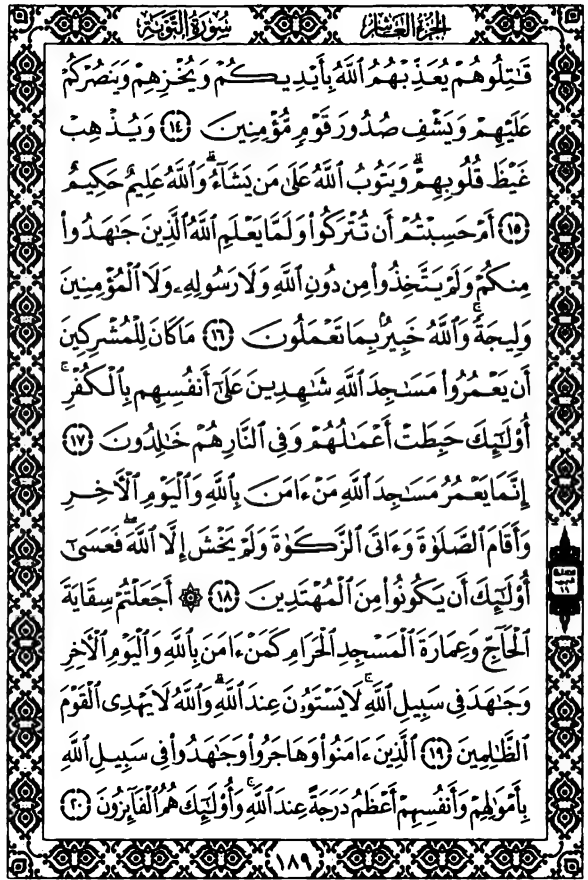 الجزء العاشر
سورة التوبة
قَٰتِلُوهُمْ يُعَذِّبْهُمُ ٱللَّهُ بِأَيْدِيكُمْ وَيُخْزِهِمْ وَيَنصُرْكُمْ
عَلَيْهِمْ وَيَشْفِ صُدُورَ قَوْمٍ مُّؤْمِنِينَ ١٤ وَيُذْهِبْ
غَيْظَ قُلُوبِهِمْ ۗ وَيَتُوبُ ٱللَّهُ عَلَىٰ مَن يَشَآءُ ۗ وَٱللَّهُ عَلِيمٌ حَكِيمٌ
١٥ أَمْ حَسِبْتُمْ أَن تُتْرَكُوا۟ وَلَمَّا يَعْلَمِ ٱللَّهُ ٱلَّذِينَ جَٰهَدُوا۟
مِنكُمْ وَلَمْ يَتَّخِذُوا۟ مِن دُونِ ٱللَّهِ وَلَا رَسُولِهِۦ وَلَا ٱلْمُؤْمِنِينَ
وَلِيجَةً ۚ وَٱللَّهُ خَبِيرٌۢ بِمَا تَعْمَلُونَ ١٦ مَا كَانَ لِلْمُشْرِكِينَ
أَن يَعْمُرُوا۟ مَسَٰجِدَ ٱللَّهِ شَٰهِدِينَ عَلَىٰٓ أَنفُسِهِم بِٱلْكُفْرِ ۚ
أُو۟لَٰٓئِكَ حَبِطَتْ أَعْمَٰلُهُمْ وَفِى ٱلنَّارِ هُمْ خَٰلِدُونَ ١٧
إِنَّمَا يَعْمُرُ مَسَٰجِدَ ٱللَّهِ مَنْ ءَامَنَ بِٱللَّهِ وَٱلْيَوْمِ ٱلْـَٔاخِرِ
وَأَقَامَ ٱلصَّلَوٰةَ وَءَاتَى ٱلزَّكَوٰةَ وَلَمْ يَخْشَ إِلَّا ٱللَّهَ ۖ فَعَسَىٰٓ
أُو۟لَٰٓئِكَ أَن يَكُونُوا۟ مِنَ ٱلْمُهْتَدِينَ ١٨ ۞ أَجَعَلْتُمْ سِقَايَةَ
ٱلْحَآجِّ وَعِمَارَةَ ٱلْمَسْجِدِ ٱلْحَرَامِ كَمَنْ ءَامَنَ بِٱللَّهِ وَٱلْيَوْمِ ٱلْـَٔاخِرِ
وَجَٰهَدَ فِى سَبِيلِ ٱللَّهِ ۚ لَا يَسْتَوُۥنَ عِندَ ٱللَّهِ ۗ وَٱللَّهُ لَا يَهْدِى ٱلْقَوْمَ
ٱلظَّٰلِمِينَ ١٩ ٱلَّذِينَ ءَامَنُوا۟ وَهَاجَرُوا۟ وَجَٰهَدُوا۟ فِى سَبِيلِ ٱللَّهِ
بِأَمْوَٰلِهِمْ وَأَنفُسِهِمْ أَعْظَمُ دَرَجَةً عِندَ ٱللَّهِ ۚ وَأُو۟لَٰٓئِكَ هُمُ ٱلْفَآئِزُونَ ٢٠
١٨٩